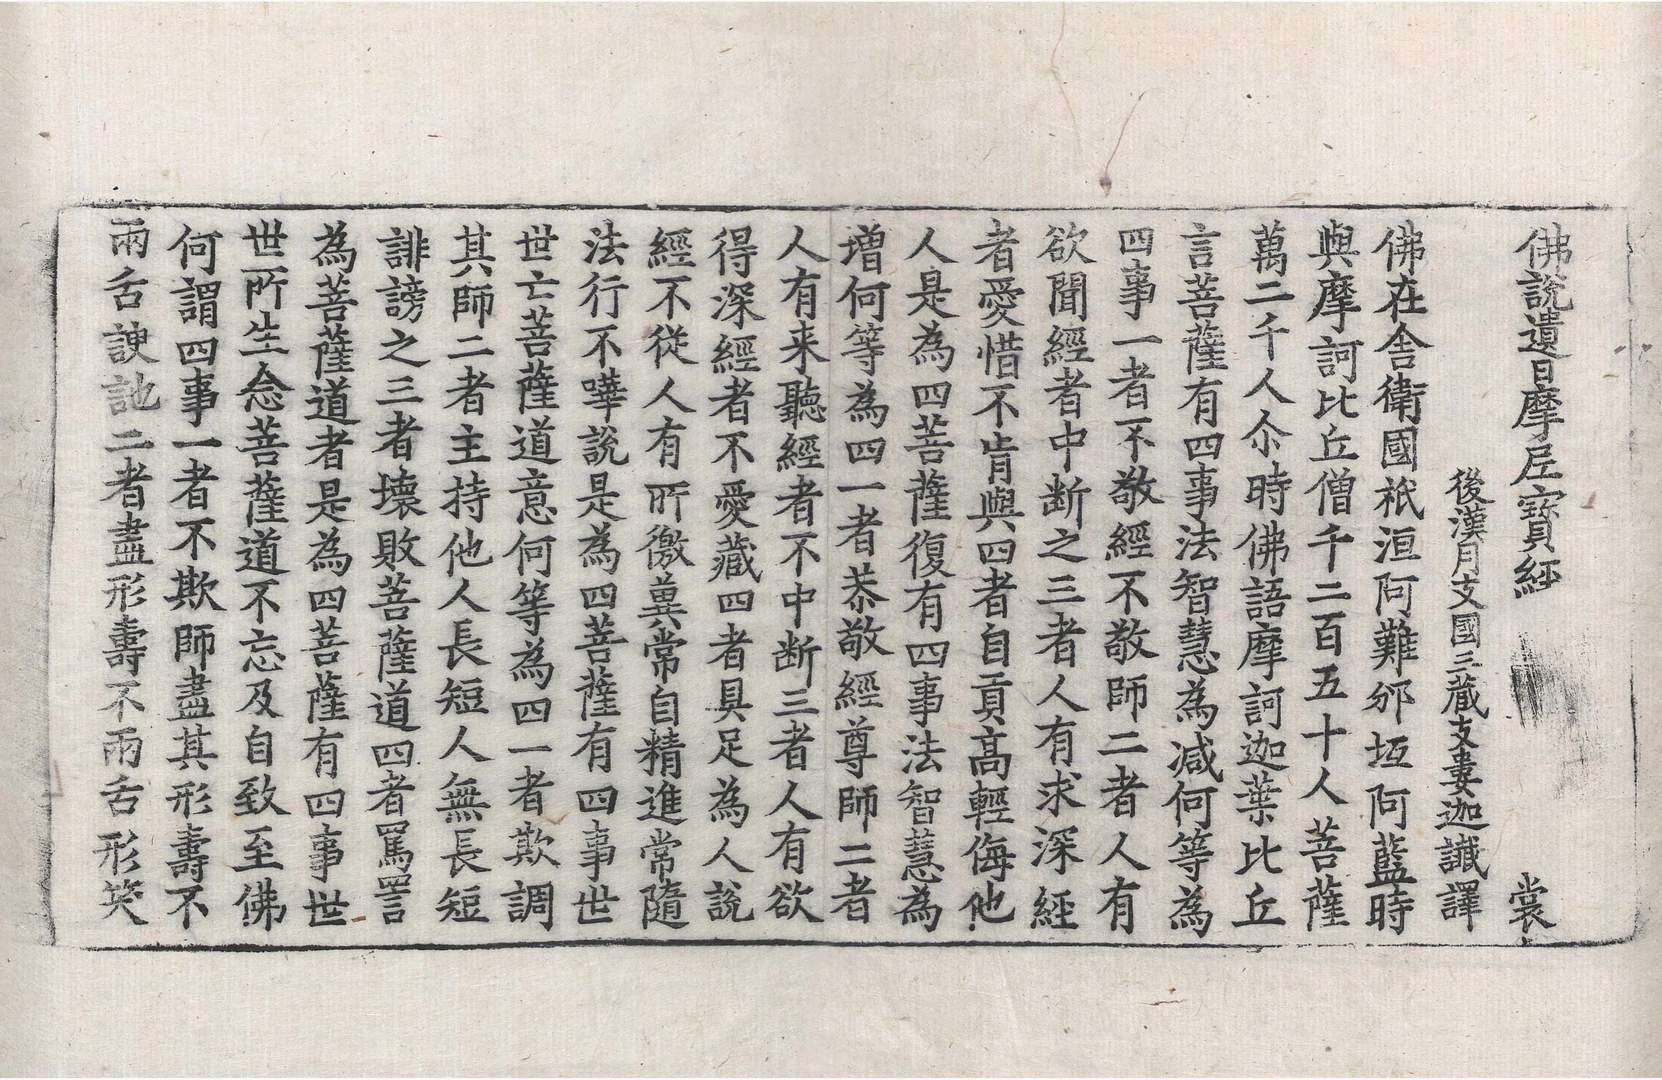 佛說遺日摩尼寶經 裳
後漢月支國三藏支婁迦讖譯
佛在舍衛國祇洹阿難邠坻阿藍時
與摩訶比丘僧千二百五十人菩薩
萬二千人尒時佛語摩訶迦葉比丘
言菩薩有四事法智慧為減何等為
四事一者不敬經不敬師二者人有
欲聞經者中断之三者人有求深經
者愛惜不肯與四者自貢高輕侮他
人是為四菩薩復有四事法智慧為
增何等為四一者恭敬經尊師二者
人有来聽經者不中断三者人有欲
得深經者不愛藏四者具足為人說
經不從人有所徼冀常自精進常隨
法行不嘩說是為四菩薩有四事世
世亡菩薩道意何等為四一者欺調
其師二者主持他人長短人無長短
誹謗之三者壞敗菩薩道四者罵詈
為菩薩道者是為四菩薩有四事世
世所生念菩薩道不忘及自致至佛
何謂四事一者不欺師盡其形壽不
兩舌諛訑二者盡形壽不兩舌形笑